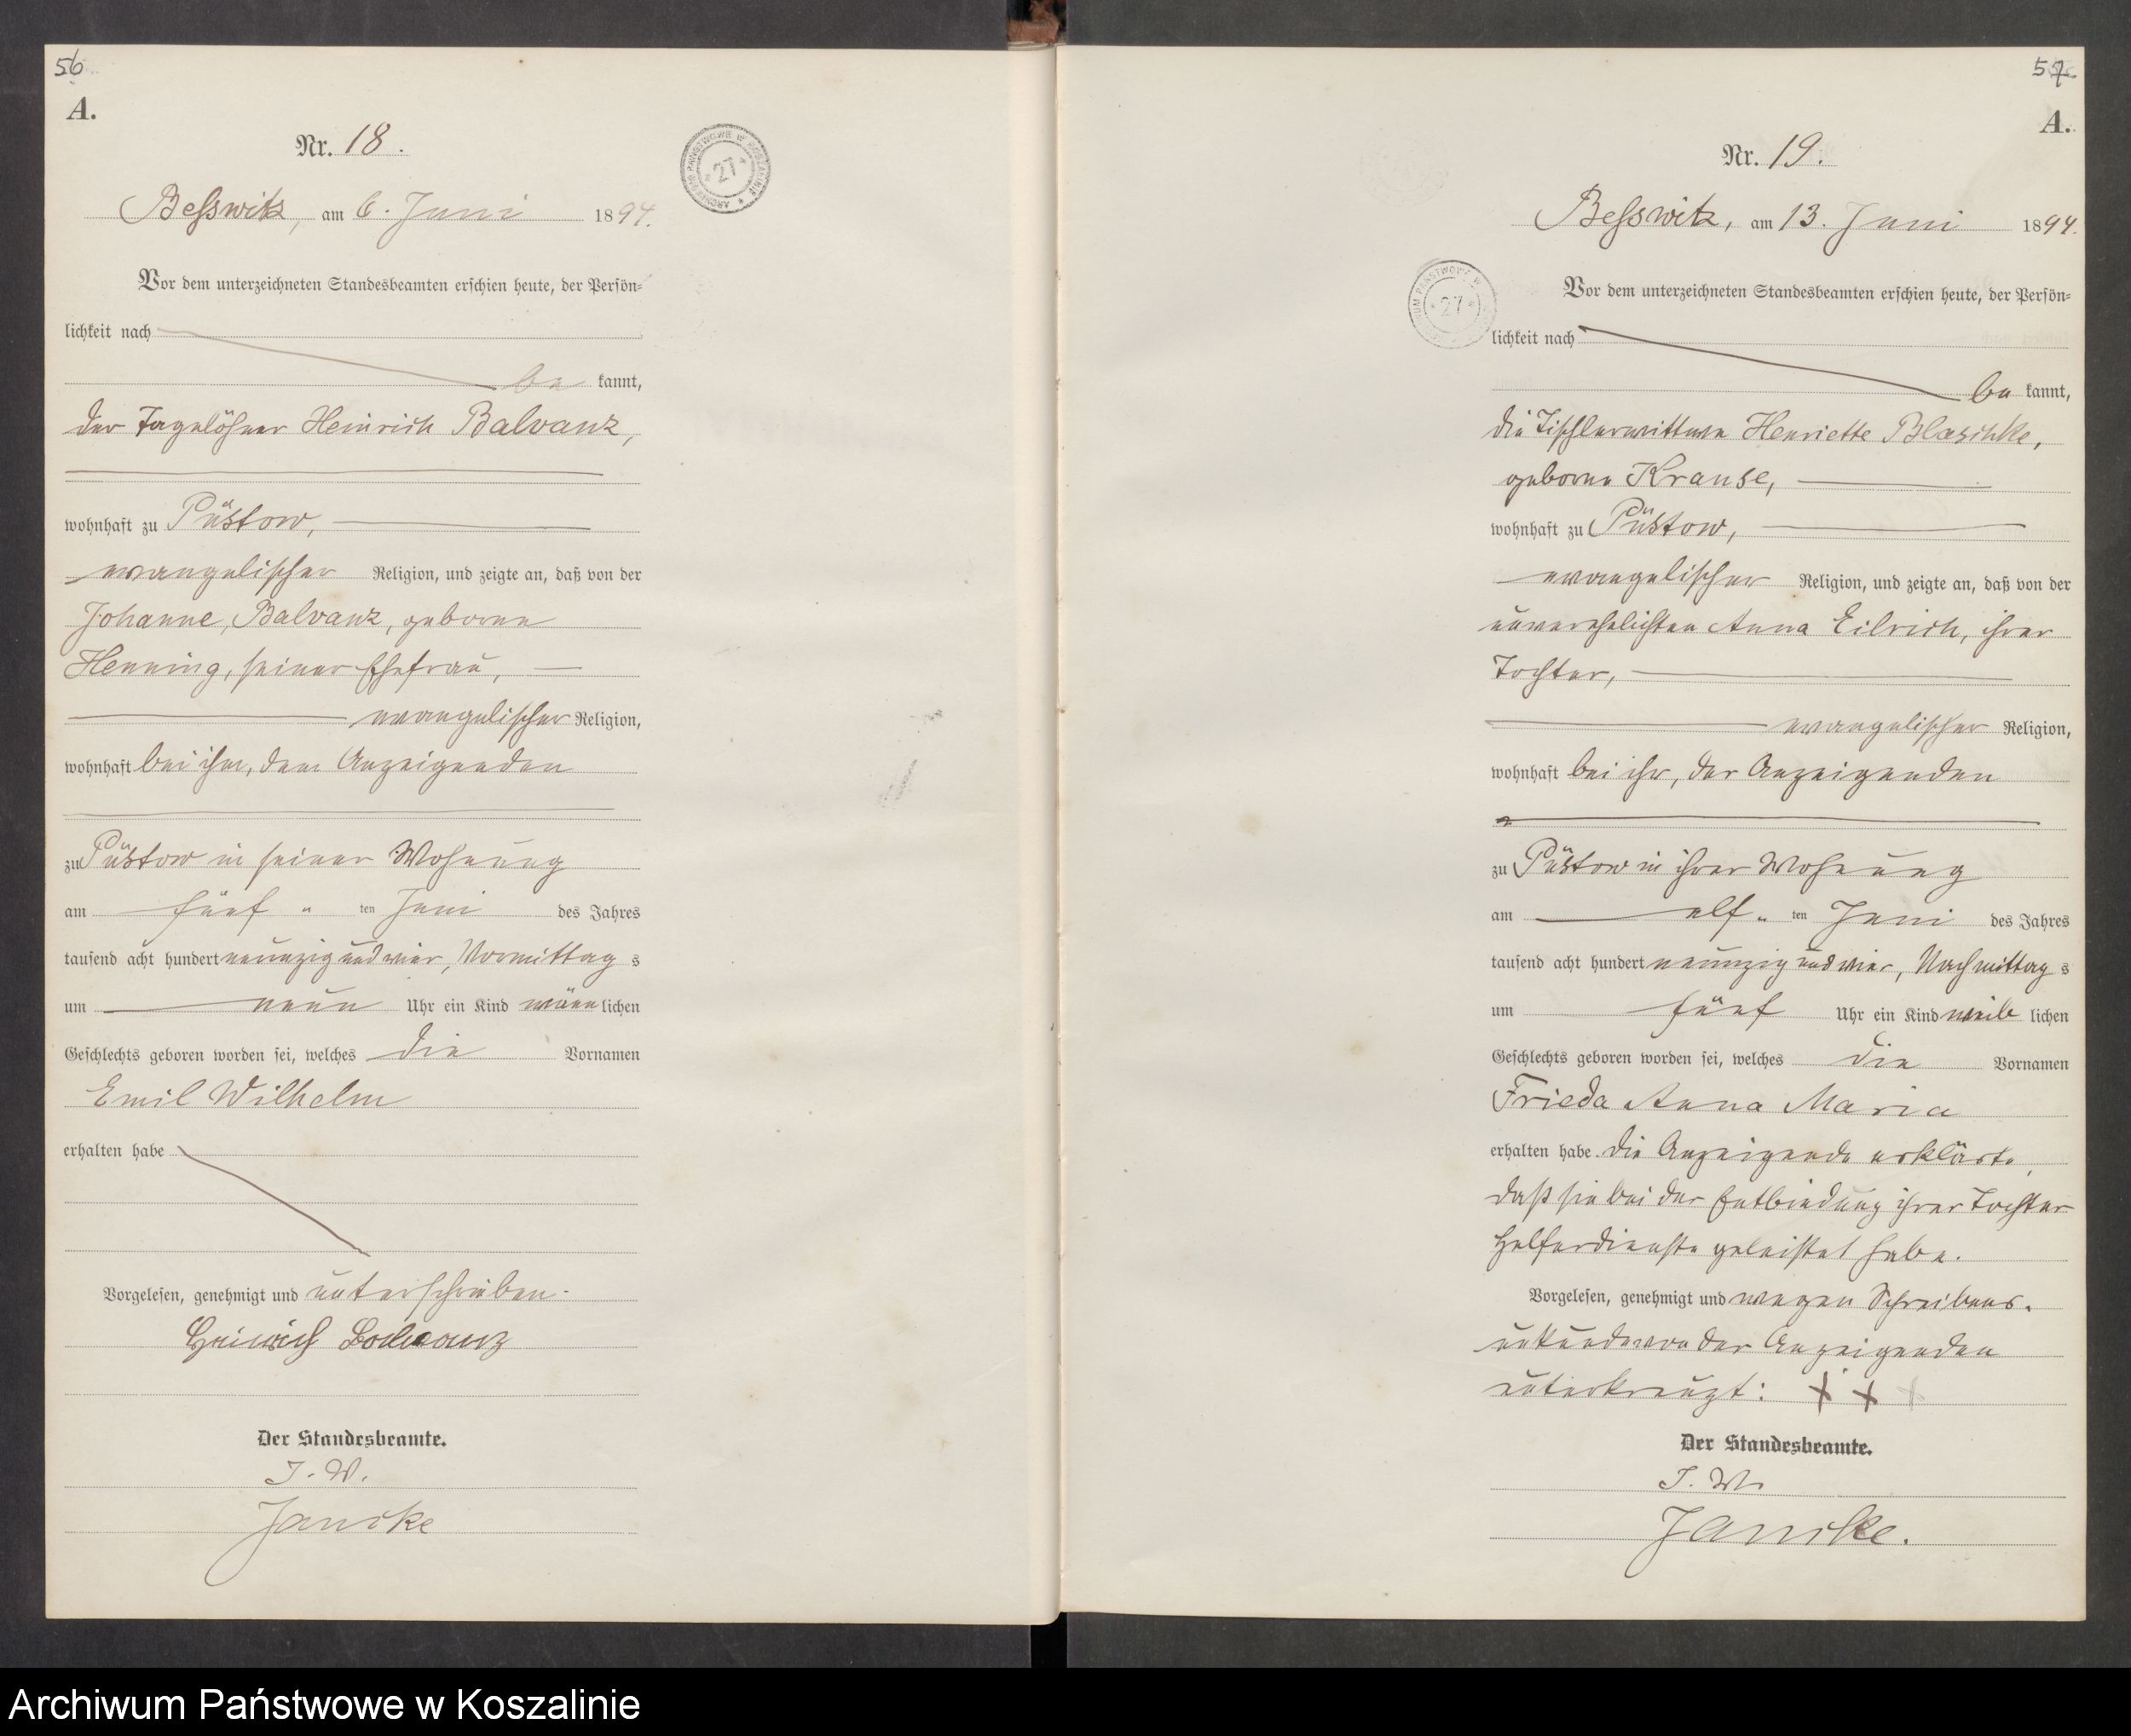 56
A.
Nr. 18.
ARCHIWUM PAŃSTWOWE W KOSZALINIE
* 27 *
Besswitz, am 6. Juni 1894.
Vor dem unterzeichneten Standesbeamten erschien heute, der Persön-
lichkeit nach
be kannt,
der Tagelöhner Heinrich Balvanz,
wohnhaft zu Püstow,
evangelischer Religion, und zeigte an, daß von der
Johanne, Balvanz, geborne
Henning, seiner Ehefrau,
evangelischer Religion,
wohnhaft bei ihm, dem Anzeigenden
zu Püstow in seiner Wohnung
am fünf ten Juni des Jahres
tausend acht hundert neunzig und vier, Vormittag s
um neun Uhr ein Kind männ lichen
Geschlechts geboren worden sei, welches die Vornamen
Emil Wilhelm
erhalten habe
Vorgelesen, genehmigt und unterschrieben.
Heinrich Balvanz
Der Standesbeamte.
J. V.
Jancke
57
A.
Nr. 19.
Besswitz, am 13. Juni 1894.
* 27 *
Vor dem unterzeichneten Standesbeamten erschien heute, der Persön-
lichkeit nach
be kannt,
die Tischlerwittwe Henriette Blaschke,
geborne Krause,
wohnhaft zu Püstow,
evangelischer Religion, und zeigte an, daß von der
unverehelichten Anna Eilrich, ihrer
Tochter,
evangelischer Religion,
wohnhaft bei ihr, der Anzeigenden
zu Püstow in ihrer Wohnung
am elf ten Juni des Jahres
tausend acht hundert neunzig und vier, Nachmittag s
um fünf Uhr ein Kind weib lichen
Geschlechts geboren worden sei, welches die Vornamen
Frieda Anna Maria
erhalten habe. Die Anzeigende erklärte,
daß sie bei der Entbindung ihrer Tochter
Helferdienste geleistet habe.
Vorgelesen, genehmigt und wegen Schreibens-
unkunde von der Anzeigenden
unterkreuzt: + + +
Der Standesbeamte.
J. V.
Jancke.
Archiwum Państwowe w Koszalinie